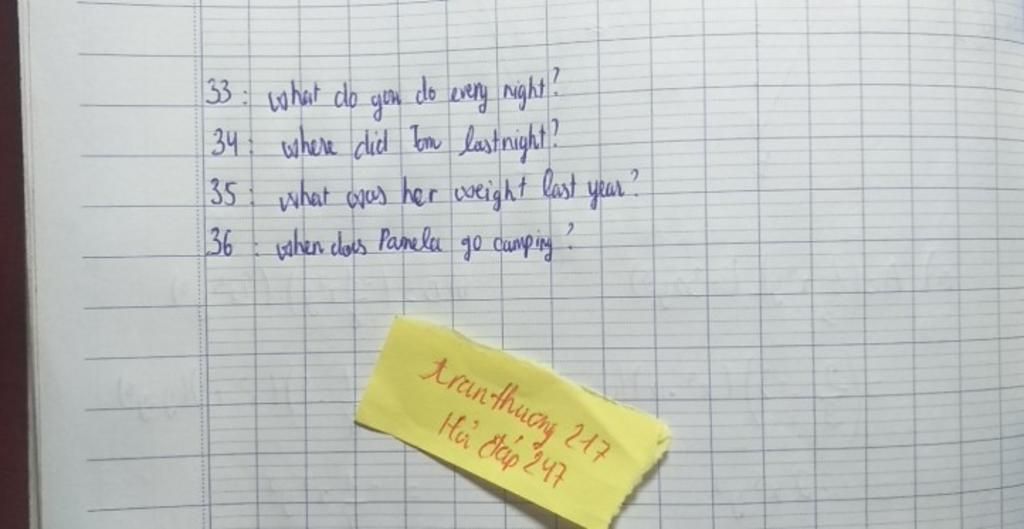 33: what do you do every night?
34: where did Tom last night?
35: what was her weight last year?
36: when does Pamela go camping?
tranthuong 217
Hỏi đáp 247